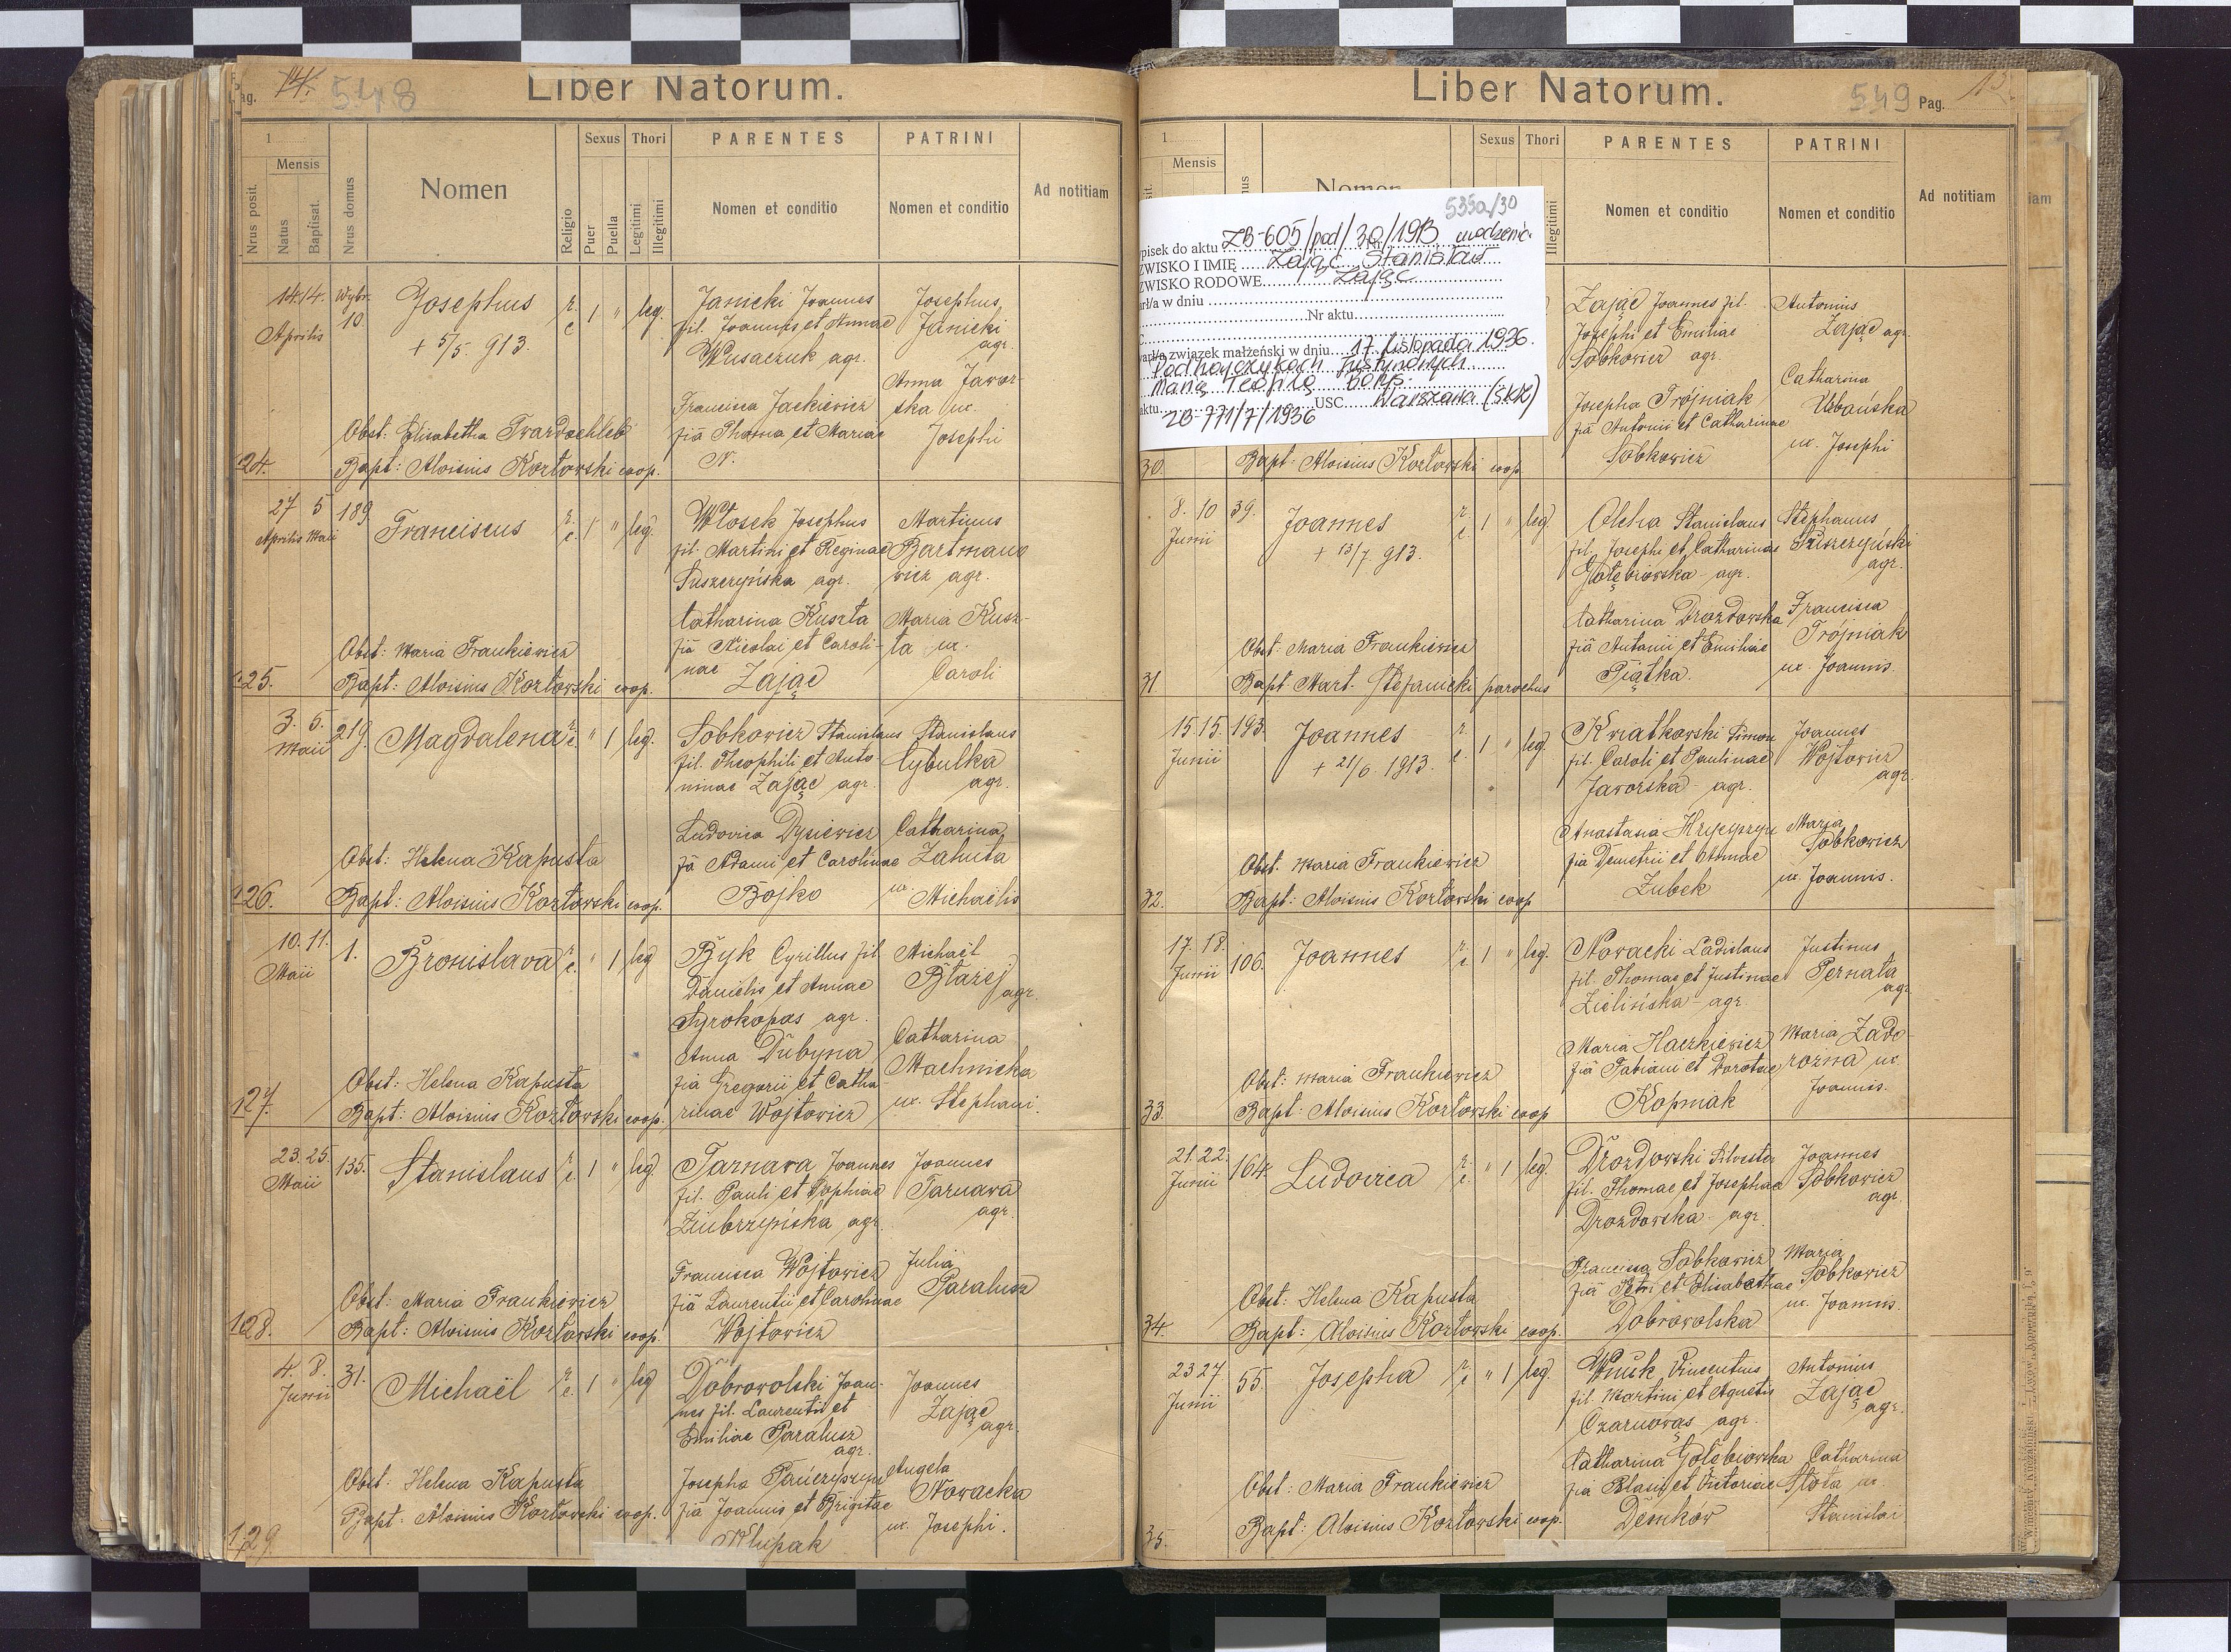 14.
548
Liber Natorum.
ag.
1
Mensis
Nrus posit.
Natus
Baptisat.
Nrus domus
Nomen
Religio
Sexus
Puer
Puella
Thori
Legitimi
Illegitimi
PARENTES
Nomen et conditio
PATRINI
Nomen et conditio
Ad notitiam
14. 14. Wybr.
Aprilis 10.
Josephus
+ 5/5. 913.
r. c. 1 " leg.
Janicki Joannes
fil. Joannis et Annae
Wusaczuk agr.
Francisca Jackiewicz
fia Thoma et Mariae
N.
Josephus
Janicki
agr.
Anna Jawor-
ska ux.
Josephi
Obst: Elisabetha Twardochleb
124. Bapt: Aloisius Kozłowski coop.
27 5 189
Aprilis Maii
Franciscus
r. c. 1 " leg.
Włosek Josephus
fil. Martini et Reginae
Suszczyńska agr.
Catharina Kuszta
fia Nicolai et Caroli-
nae Zając
Martinus
Bartmano
wicz agr.
Maria Kusz-
ta ux.
Caroli
Obst: Maria Frankiewicz
125. Bapt: Aloisius Kozłowski coop.
3. 5. 219.
Maii
Magdalena
r. c. " 1 leg.
Sobkowicz Stanislaus
fil. Theophili et Anto
ninae Zając agr.
Ludovica Dysiewicz
fia Adami et Carolinae
Bojko
Stanislaus
Cybulka
agr.
Catharina
Zahuta
ux.
Michaelis
Obst: Helena Kapusta
126. Bapt: Aloisius Kozłowski coop.
10. 11. 1.
Maii
Bronislava
r. c. " 1 leg
Byk Cyrillus fil.
Danielis et Annae
Syrokopas agr.
Anna Dubyna
fia Gregorii et Catha-
rinae Wojtowicz
Michael
Błażej
agr.
Catharina
Machnicka
ux. Stephani.
Obst: Helena Kapusta
127. Bapt: Aloisius Kozłowski coop.
23. 25. 135.
Maii
Stanislaus
r. c. 1 " leg
Tarnawa Joannes
fil. Pauli et Sophiae
Ziubrzyńska agr.
Francisca Wojtowicz
fia Laurentii et Carolinae
Wojtowicz
Joannes
Tarnawa
agr.
Julia
Paralusz
Obst: Maria Frankiewicz
128. Bapt: Aloisius Kozłowski coop.
4. 8. 31.
Junii
Michaël
r. c. 1 " leg
Dobrowolski Joan-
nes fil. Laurentii et
Emiliae Paralusz
agr.
Josepha Pańczyszyn
fia Joannis et Brigitae
Klupak
Joannes
Zając
agr.
Angela
Nowacka
ux. Josephi.
Obst: Helena Kapusta
Bapt: Aloisius Kozłowski coop.
129.
Liber Natorum.
549 Pag. 15
1
Mensis
Nomen
Sexus
Thori
Illegitimi
PARENTES
Nomen et conditio
PATRINI
Nomen et conditio
Ad notitiam
iam
535a/30
pisek do aktu ZB-605/pod/30/1913 urodzenia
ZWISKO I IMIĘ Zając Stanisław
ZWISKO RODOWE Zając
arł/a w dniu
Nr aktu
warł/a związek małżeński w dniu 17 listopada 1936.
Podhajczykach Justynowych
Marią Teofilą
aktu USC Warszawa (ŚKK)
ZB-771/7/1936
Zając Joannes fil.
Josephi et Emiliae
Sobkowicz agr.
Josepha Trójniak
fia Antonii et Catharinae
Sobkowicz
Antonius
Zając agr.
Catharina
Urbańska
ux. Josephi
30. Bapt: Aloisius Kozłowski coop.
8. 10 39.
Junii
Joannes
+ 13/7 913.
r. c. 1 " leg
Olcha Stanislaus
fil. Josephi et Catharinae
Gołębiowska agr.
Catharina Drozdowska
fia Antonii et Emiliae
Piątka.
Stephanus
Suszczyński
agr.
Francisca
Trójniak
ux. Joannis.
Obst: Maria Frankiewicz
31. Bapt Mart. Stefanicki parochus
15. 15. 193.
Junii
Joannes
+ 21/6. 1913.
r. c. 1 " leg.
Kwiatkowski Simon
fil. Caroli et Paulinae
Jaworska agr.
Anastasia
fia Demetrii et Annae
Zubek
Joannes
Wojtowicz
agr.
Maria
Sobkowicz
ux. Joannis.
Obst. Maria Frankiewicz
32. Bapt: Aloisius Kozłowski coop
17. 18. 106.
Junii
Joannes
r. c. 1 " leg.
Nowacki Ladislaus
fil. Thomae et Justinae
Zielińska agr.
Maria Haczkiewicz
fia Fabiani et Dorotae
Kopniak
Justinus
Pernata
agr
Maria Zado-
rozna ux.
Joannis.
Obst: Maria Frankiewicz
33. Bapt: Aloisius Kozłowski coop
21. 22. 164.
Junii
Ludovica
r. c. " 1 leg
Drozdowski Silvester
fil. Thomae et Josephae
Drozdowska agr.
Francisca Sobkowicz
fia Petri et Elisabethae
Dobrowolska
Joannes
Sobkowicz
agr.
Maria
Sobkowicz
ux. Joannis.
Obst: Helena Kapusta
34. Bapt: Aloisius Kozłowski coop.
23 27 55.
Junii
Josepha
r. c " 1 leg.
Wnuk Vincentius
fil. Martini et Agnetis
Czarnowąs agr.
Catharina Gołębiowska
fia Blasii et Victoriae
Demków
Antonius
Zając
agr.
Catharina
Słota ux.
Stanislai
Obst: Maria Frankiewicz
35. Bapt: Aloisius Kozłowski coop.